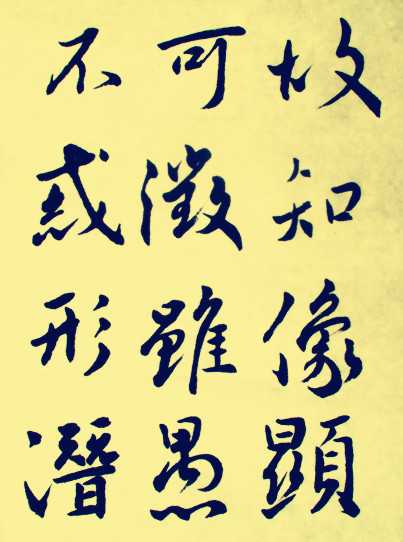 故知像顯
可徵雖愚
不惑形潛